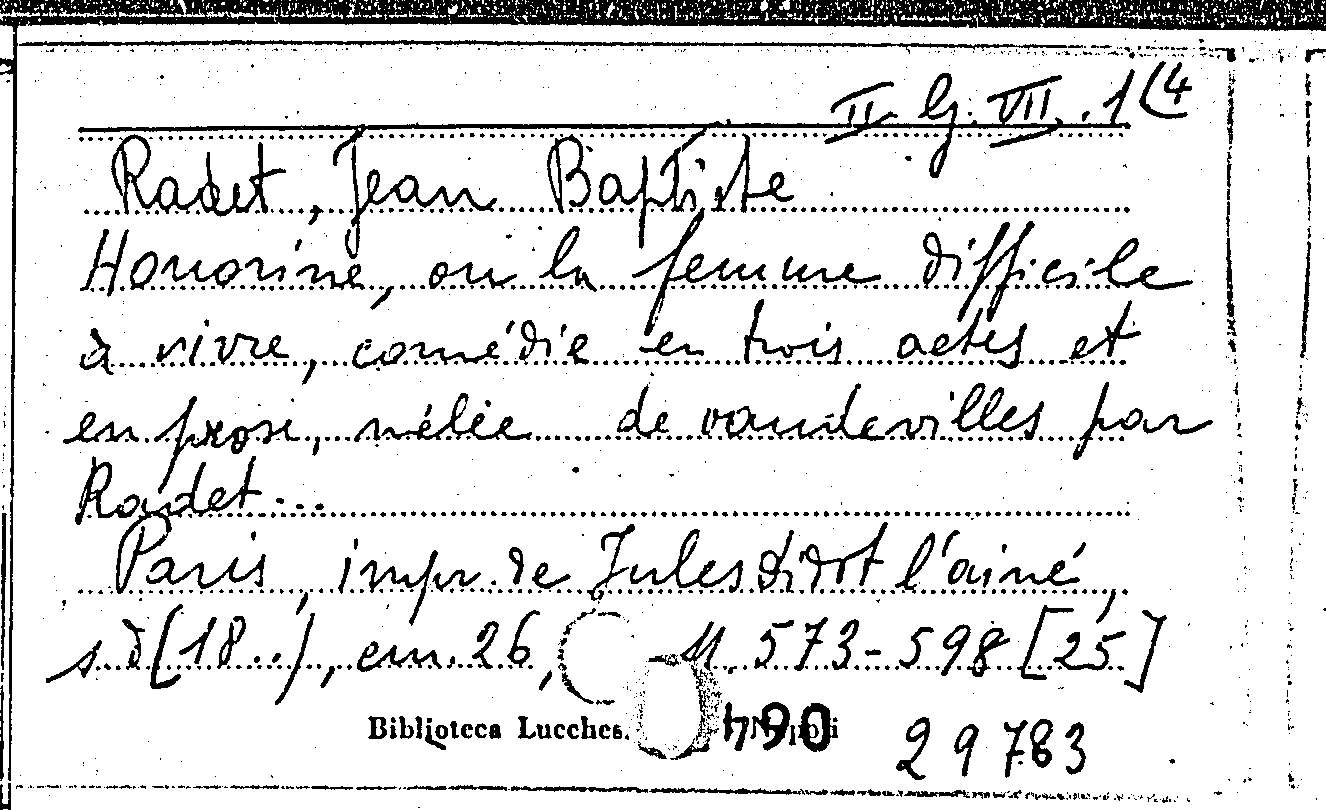 II. G. VII. 1(4
Radet, Jean Baptiste
Honorine, ou la femme difficile
à vivre, comédie en trois actes et
en prose, mêlée de vaudevilles par
Radet...
Paris, impr. de Jules Didot l'ainé,
s.d (18..), cm. 26, 573-598 [25]
Biblioteca Lucches. 790
29783